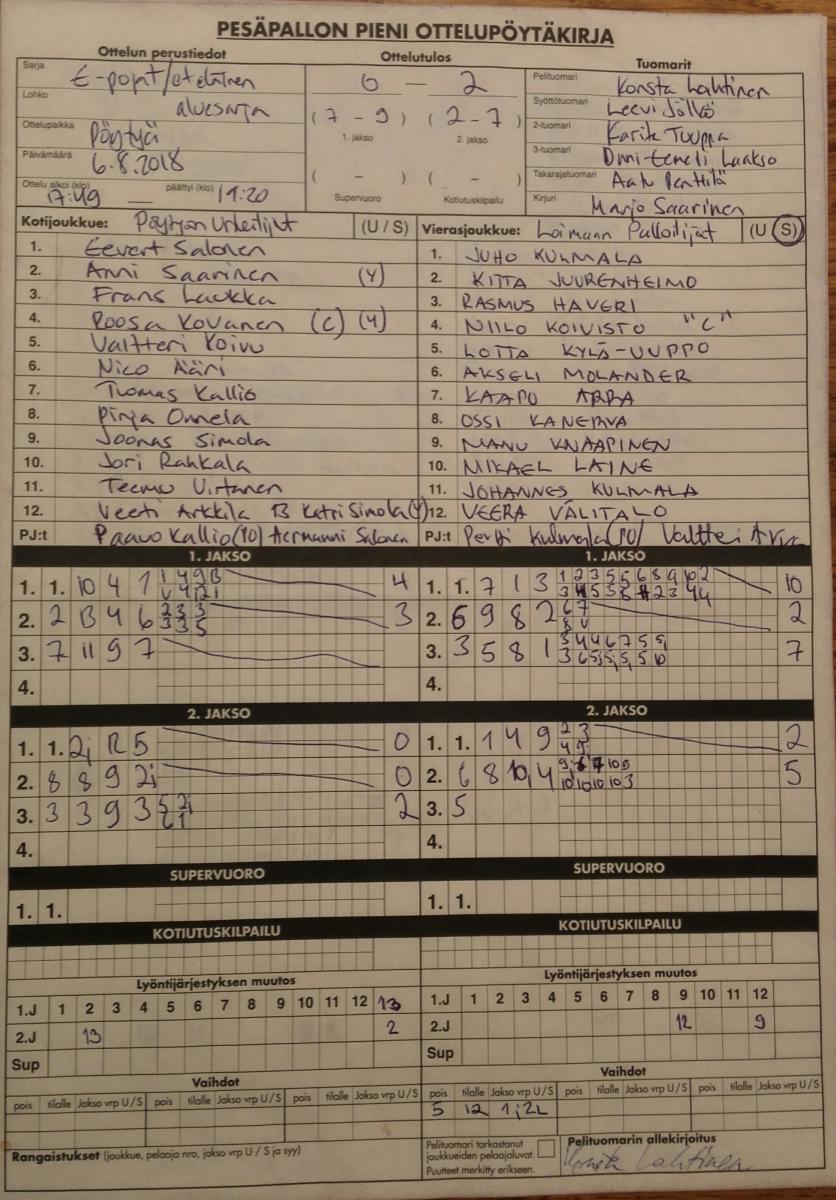 PESÄPALLON PIENI OTTELUPÖYTÄKIRJA
Ottelun perustiedot
Sarja E-pojat/eteläinen
Lohko aluesarja
Ottelupaikka Pöytyä
Päivämäärä 6.8.2018
Ottelu alkoi (klo) 17:49 — päättyi (klo) 19:20
Ottelutulos
0 — 2
(7 - 9) (2 - 7)
1. jakso 2. jakso
( - ) ( - )
Supervuoro Kotiutuskilpailu
Tuomarit
Pelituomari Konsta Lahtinen
Syöttötuomari Leevi Jällö
2-tuomari Karita Tuuppa
3-tuomari Onni-Eemeli Laakso
Takarajatuomari Aatu Penttilä
Kirjuri Marjo Saarinen
Kotijoukkue: Pöytyän Urheilijat (U / S)
1. Eevert Salonen
2. Anni Saarinen (Y)
3. Frans Laukka
4. Roosa Kovanen (C) (Y)
5. Valtteri Koivu
6. Nico Ääri
7. Tuomas Kallio
8. Pinja Onnela
9. Joonas Simola
10. Jori Rahkala
11. Teemu Virtanen
12. Veeti Arkkila 13 Katri Simola (Y)
PJ:t Paavo Kallio (PJ) Hermanni Salonen
Vierasjoukkue: Loimaan Palloilijat (U S)
1. JUHO KULMALA
2. KITTA JUURENHEIMO
3. RASMUS HAVERI
4. NIILO KOIVISTO "C"
5. LOTTA KYLÄ-UUPPO
6. AKSELI MOLANDER
7. KAAPO ARRA
8. OSSI KANERVA
9. MANU KNAAPINEN
10. MIKAEL LAINE
11. JOHANNES KULMALA
12. VEERA VÄLITALO
PJ:t Pertti Kulmala (PJ) Valtteri
1. JAKSO
1. 1. 10 4 1 4
2. 2 13 4 6 2 3 3 3 3 5 3
3. 7 11 9 7
4.
1. JAKSO
1. 1. 7 1 3 10
2. 6 9 8 2 2
3. 3 5 8 1 7
4.
2. JAKSO
1. 1. 2j R 5 0
2. 8 8 9 2j 0
3. 3 3 9 3 2
4.
2. JAKSO
1. 1. 1 4 9 2
2. 6 8 10, 4 5
3. 5
4.
SUPERVUORO
1. 1.
SUPERVUORO
1. 1.
KOTIUTUSKILPAILU
KOTIUTUSKILPAILU
Lyöntijärjestyksen muutos
1.J 1 2 3 4 5 6 7 8 9 10 11 12 13
2.J 13 2
Sup
Lyöntijärjestyksen muutos
1.J 1 2 3 4 5 6 7 8 9 10 11 12
2.J 12 9
Sup
Vaihdot
pois tilalle Jakso vrp U / S pois tilalle Jakso vrp U / S pois tilalle Jakso vrp U / S
Vaihdot
pois tilalle Jakso vrp U / S pois tilalle Jakso vrp U / S pois tilalle Jakso vrp U / S
5 12 1j2L
Rangaistukset (joukkue, pelaaja nro, jakso vrp U / S ja syy)
Pelituomari tarkastanut
joukkueiden pelaajaluvat.
Puutteet merkitty erikseen.
Pelituomarin allekirjoitus
Konsta Lahtinen